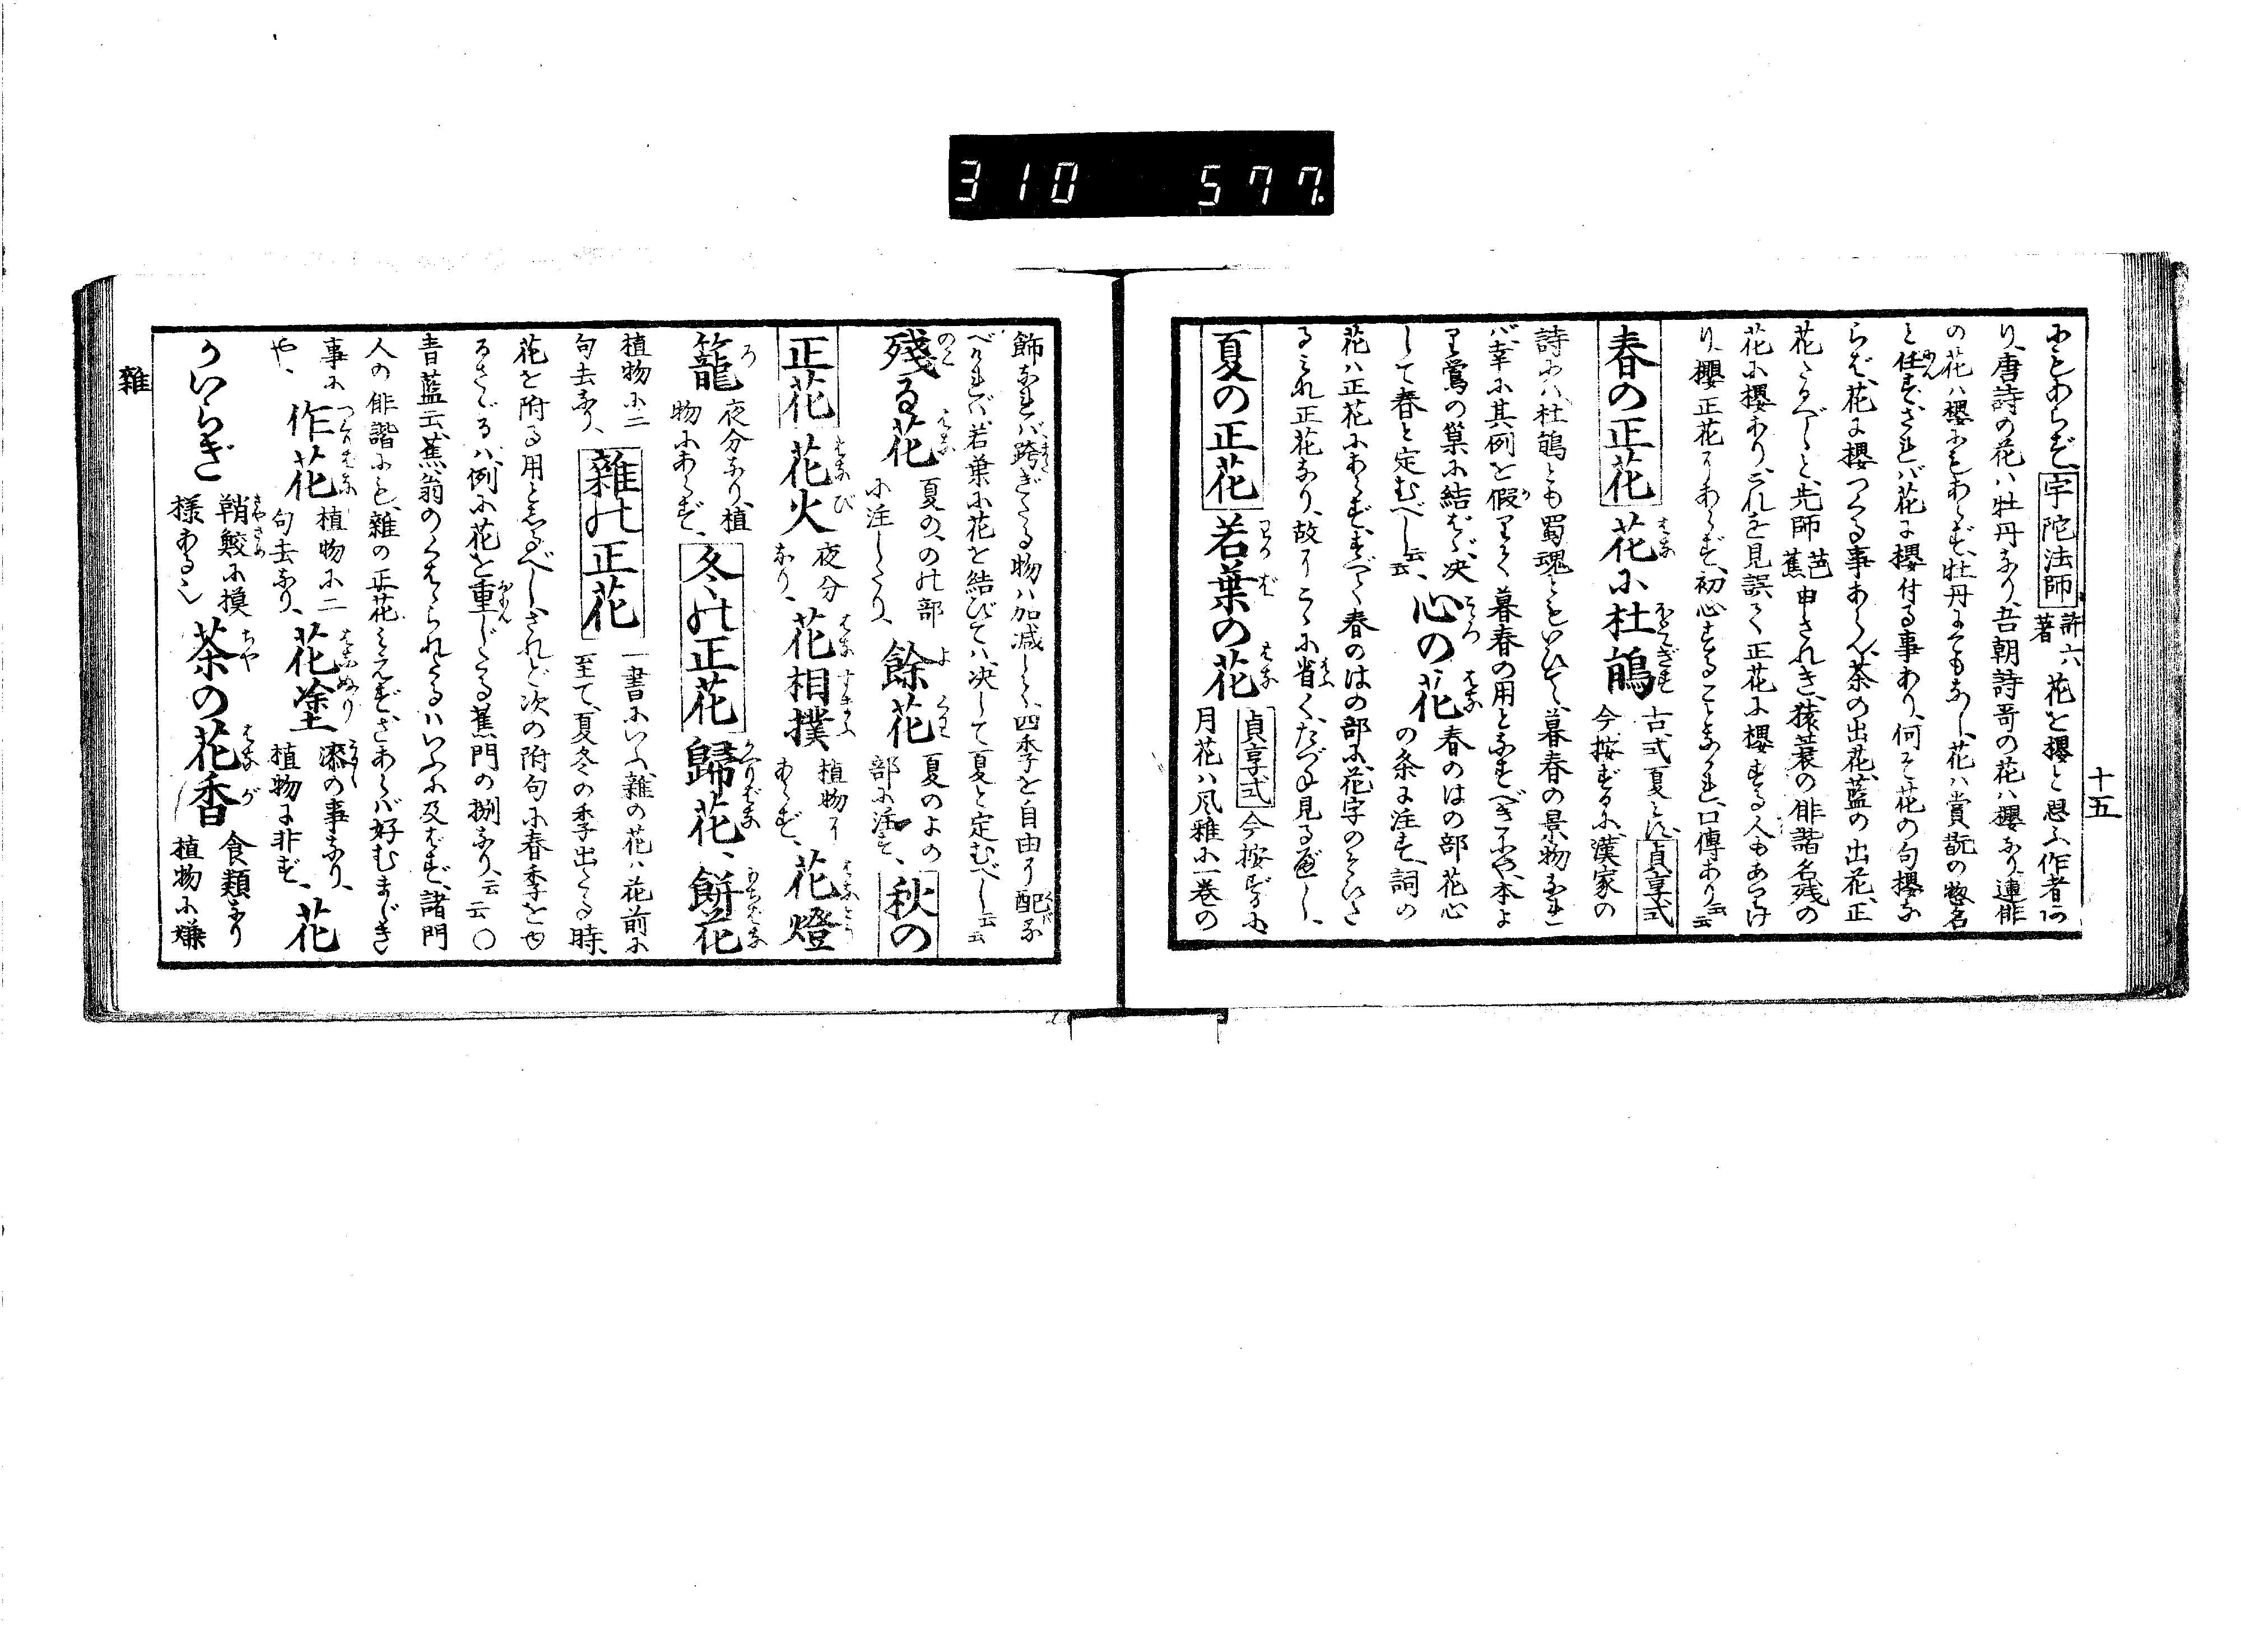 310 577.
十五
にもあらず、宇陀法師 許六著 花を櫻と思ふ作者有
り、唐詩の花ハ牡丹なり、吾朝詩哥の花ハ櫻なり、連俳
の花ハ櫻にもあらず、牡丹にてもなし、花ハ賞翫の惣名
と任ず、されバ花に櫻付る事あり、何そ花の句櫻な
らば、花に櫻つくる事あらん、茶の出花、藍の出花、正
花たるべしと、先師芭蕉申されき、猿蓑の俳諧名残の
花に櫻あり、これを見誤て正花に櫻する人もあらバ
り、櫻正花にあらず、初心することなかれ、口傳あり云云
春の正花 花に杜鵑 古式夏とす、貞享式
今按ずるに、漢家の
詩にハ、杜鵑とも蜀魂ともいひて、暮春の景物なれ
バ、幸に其例を假りて暮春の用となすべきにや、本よ
り鶯の巣に結ばゞ、决
して春と定むべし云云、心の花 春のはの部花心
の条に注す、詞の
花ハ正花にあらず、すべて春のはの部に、花字のそひた
るミな正花なり、故にこゝに省く、たづね見る匣し、
夏の正花 若葉の花 貞享式 今按ずるに
月花ハ風雅に一巻の
飾なれバ、跨ぎたる物ハ加减して、四季を自由に配る
べけれバ、若葉に花を結びてハ、决して夏と定むべし云云
殘る花 夏の、の部
に注したり、餘花 夏のよの
部に注す、秋の
正花 花火 夜分
なり、花相撲 植物に
あらず、花燈
籠 夜分なり、植
物にあらず、冬の正花 歸花、餅花
植物に二
句去なり、雜の正花 一書にいふ、雜の花ハ花前に
至て、夏冬の季出たる時、
花を附る用と忘るべし、されど次の附句に春季をせ
るさゞるハ、例に花を重じたる蕉門の捌なり、云云 〇
青藍云、蕉翁のくはへられたるハいふに及ばず、諸門
人の俳諧にも、雜の正花ミえず、さあらバ好むまじき
事に
や、作花 植物に二
句去なり、花塗 漆の事なり、
植物に非ず、花
かいらぎ 鞘鮫に換
様ある也 茶の花香 食類なり
植物に嫌
雜